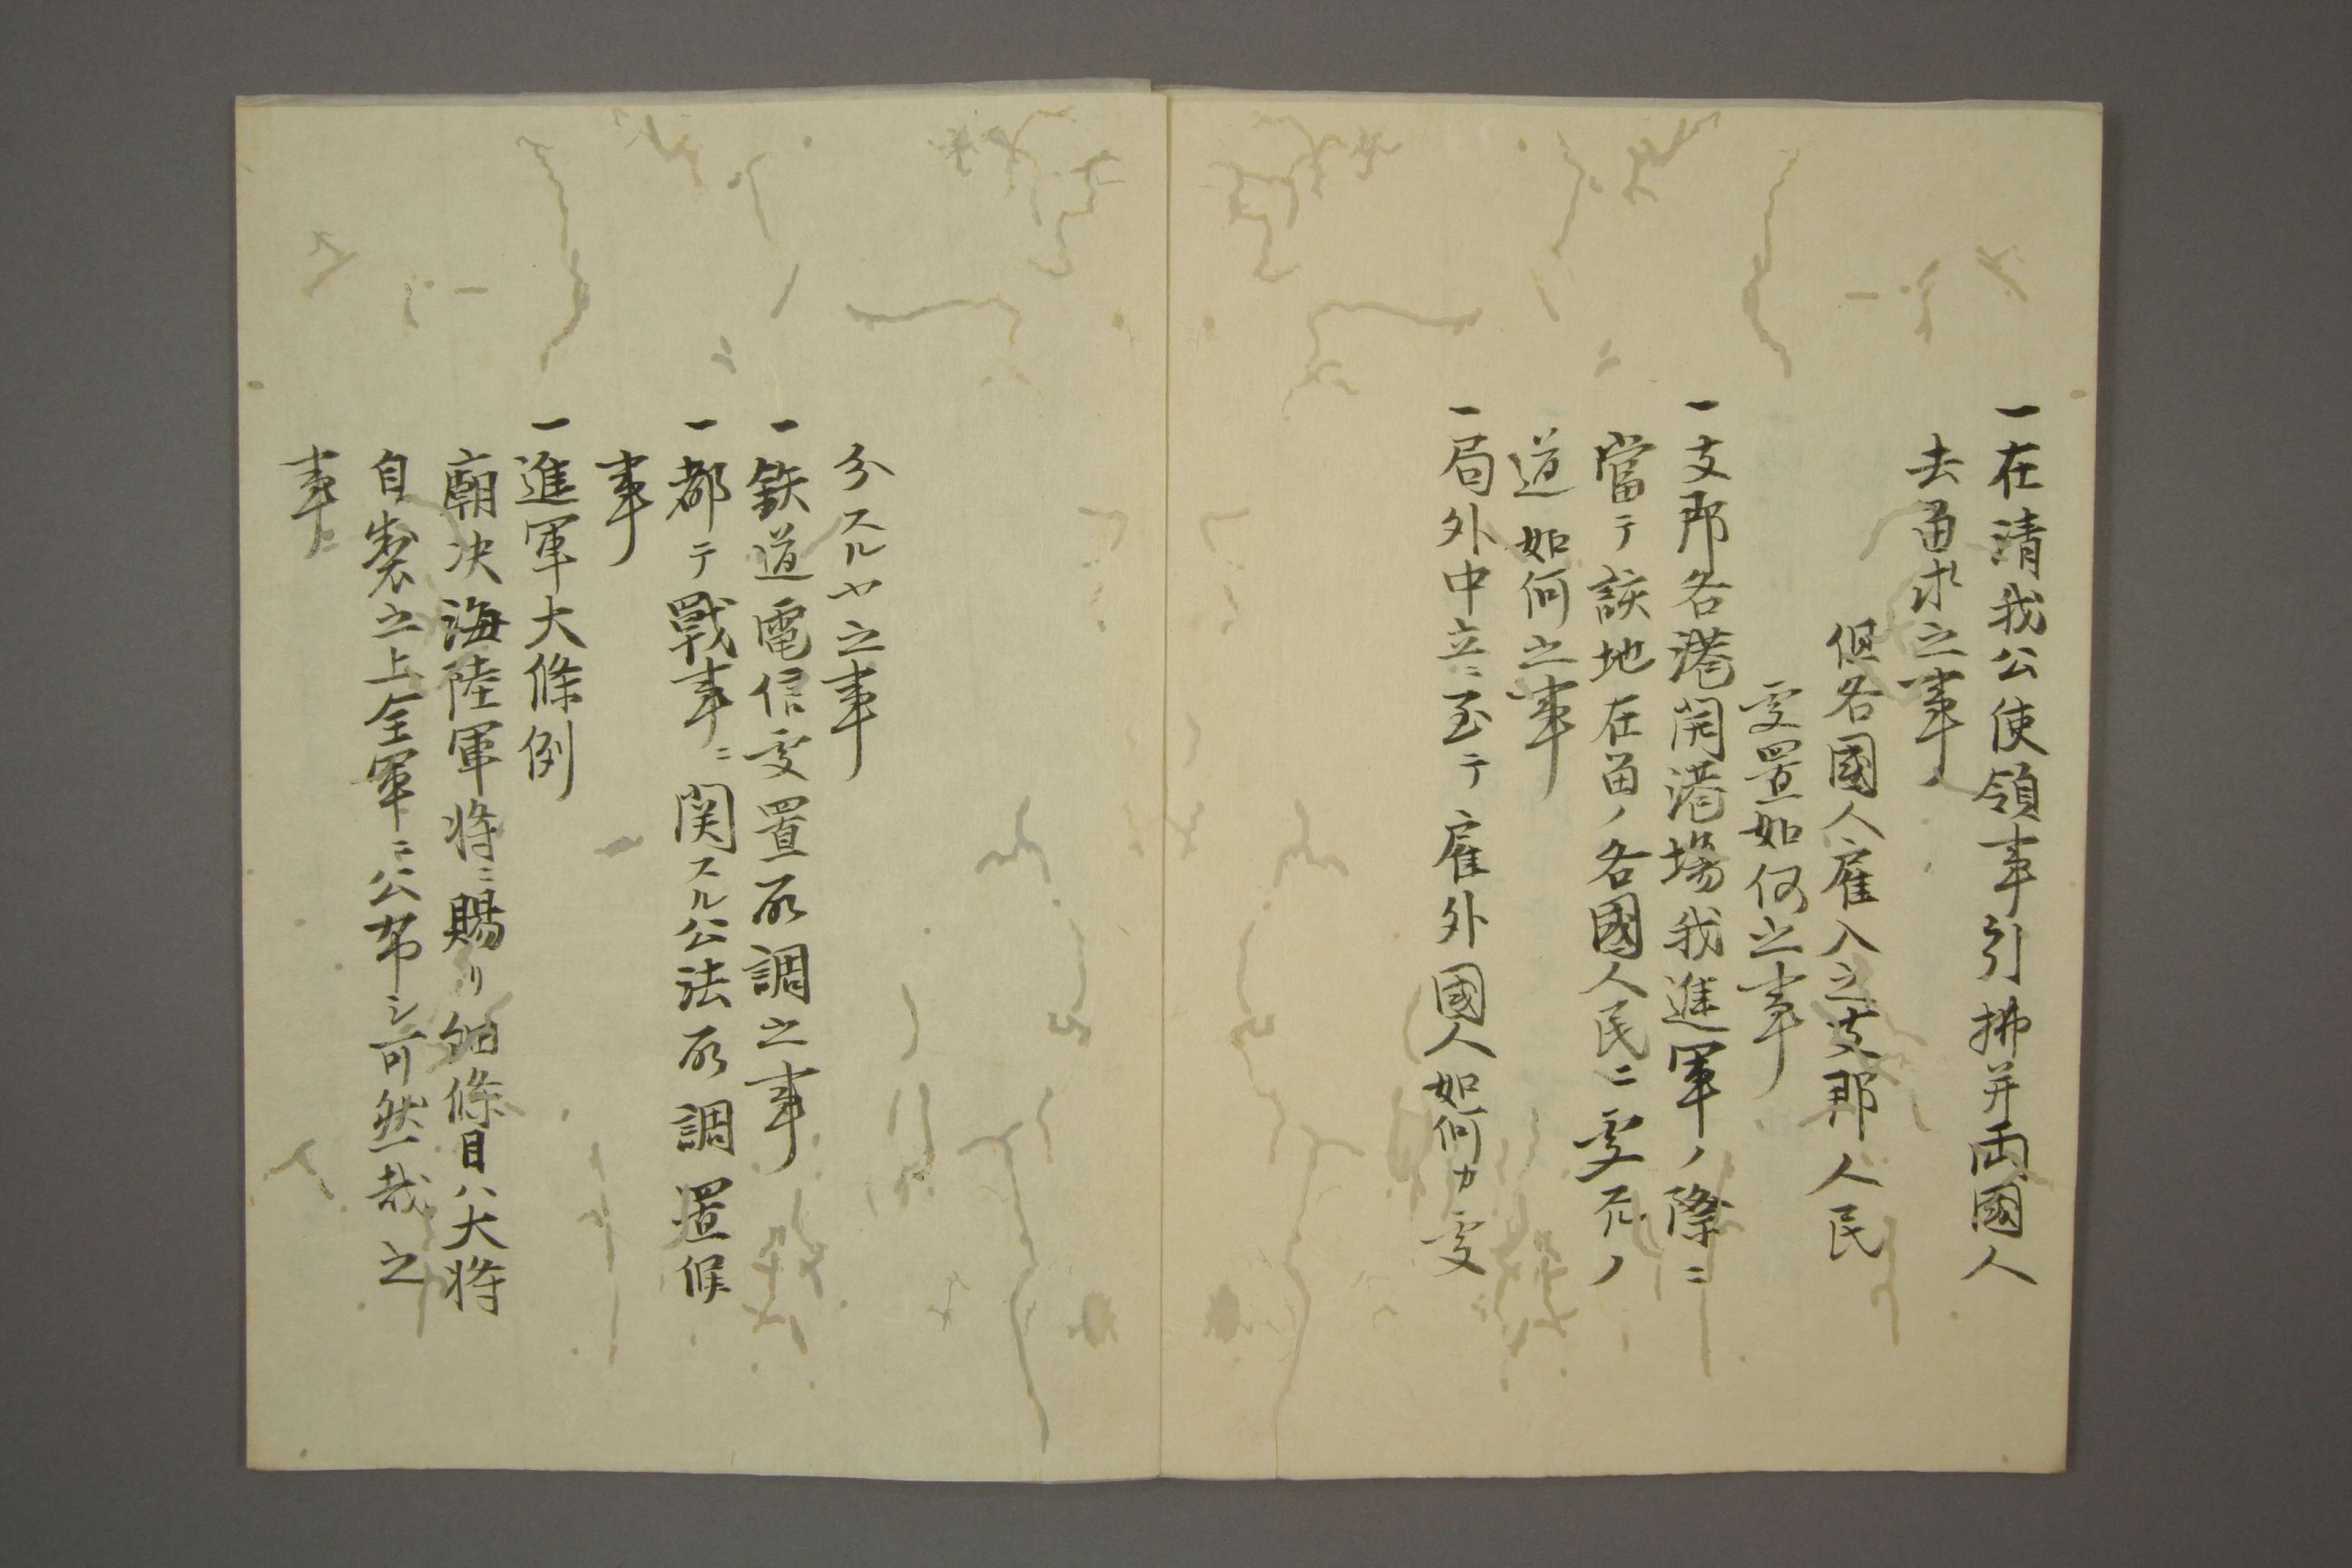 一在清我公使領事引拂并両國人
去留ホ之事
但各國人雇入之支那人民
処置如何之事
一支那各港開港場我進軍ノ際ニ
當テ該地在留ノ各國人民ニ処スルノ
道如何之事
一局外中立ニ至テ雇外國人如何カ処
分スルヤ之事
一鉄道電信処置取調之事
一都テ戰事ニ関スル公法取調置候
事
一進軍大條例
廟决海陸軍将ニ賜リ細條目ハ大将
自製之上全軍ニ公布シ可然哉之
事